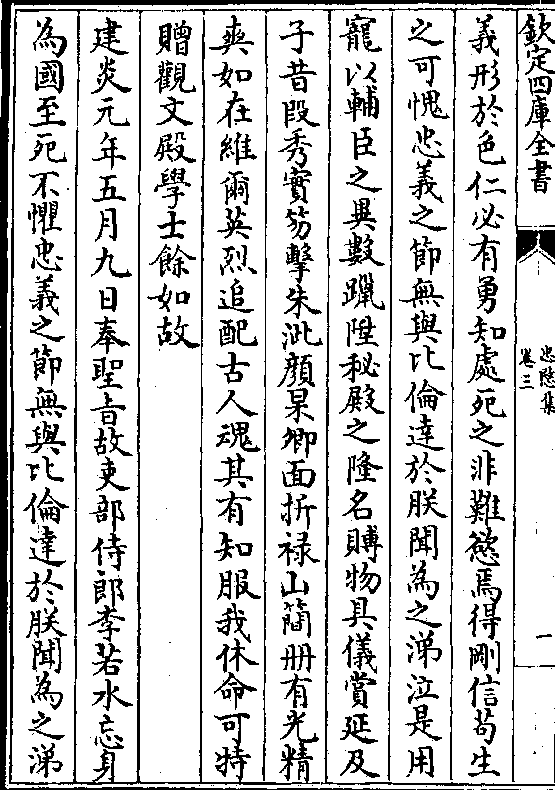 欽定四庫全書
忠愍集
卷三
一
義形於色仁必有勇知處死之非難慾焉得剛信苟生
之可愧忠義之節無與比倫達於朕聞為之涕泣是用
寵以輔臣之異數躐陞秘殿之隆名賻物具儀賞延及
子昔段秀實笏擊朱泚顔杲卿面折禄山簡冊有光精
爽如在維爾英烈追配古人魂其有知服我休命可特
贈觀文殿學士餘如故
建炎元年五月九日奉聖旨故吏部侍郎李若水忘身
為國至死不懼忠義之節無與比倫達於朕聞為之涕